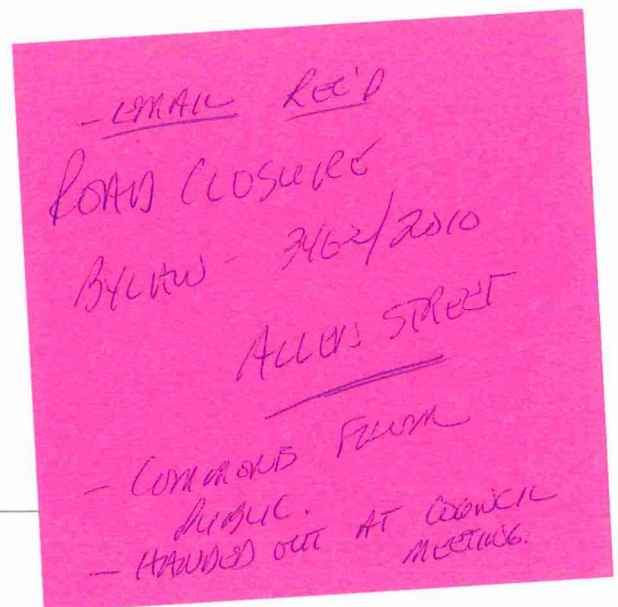 - EMAIL REC'D
ROAD CLOSURE
BYLAW - 3462/2010
ALLEN STREET
- COMMENTS FROM
PUBLIC.
- HANDED OUT AT COUNCIL
MEETING.